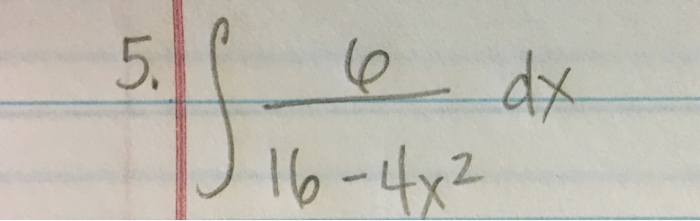 5. ∫ 6/(16-4x²) dx